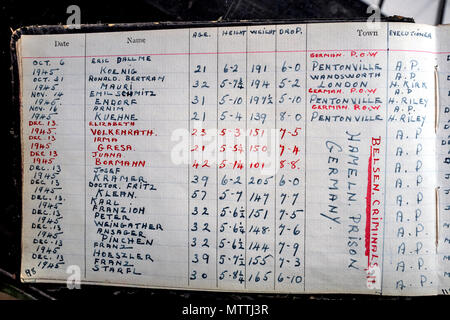 Date Name AGE. HEIGHT WEIGHT DROP. Town EXECUTIONER
OCT. 6 ERIC DALLME GERMAN. P.O.W
1945 KOENIG 21 6-2 191 6-0 PENTONVILLE A.P.
OCT. 31 RONALD. BERTRAM WANDSWORTH A.P.
1945 MAURI 32 5-7½ 194 5-2 LONDON H. KIRK
NOV. 16 EMIL SCHMITZ GERMAN. P.O.W A.P.
1945 ENDORF 31 5-10 197½ 5-10 PENTONVILLE H. RILEY
NOV. 16 ARNIM GERMAN. P.O.W A.P.
1945 KUEHNE 21 5-4 139 8-0 PENTONVILLE H. RILEY
DEC. 13 ELIZABETH
1945. VOLKENRATH. 25 5-3 151 7-5 A.P.
DEC. 13 IRMA
1945. GRESA. 21 5-5¼ 150 7-4 A.P.
DEC. 13 JUANA.
1945. BORMANN 42 5-1½ 101 8-8. A.P.
DEC. 13 JOSEF
1945. KRAMER 39 6-2 205 6-0 A.P.
DEC. 13 DOCTOR. FRITZ
1945. KLEAN. 57 5-7 147 7-7 A.P.
DEC. 13 KARL.
1945. FRANZIOH 32 5-6½ 151 7-5 A.P.
DEC. 13 PETER
1945. WEINGATHER 32 5-6½ 148 7-6 A.P.
DEC. 13 ANSAGER
1945. PINCHEN 32 5-6½ 144 7-9 A.P.
DEC. 13 FRANZ
1945. HOESZLER 39 5-7½ 155 7-3 A.P.
DEC. 13 FRANZ
1945. STARFL 30 5-8½ 165 6-10 A.P.
BELSEN. CRIMINALS
HAMELN. PRISON
GERMANY.
95
alamy stock photo